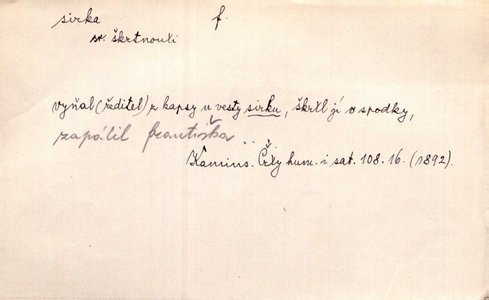 sirka f.
sr. škrtnouti
vyňal (ředitel) z kapsy u vesty sirku, škrtl jí o spodky,
zapálil františka ...
Kamins. Črty hum. i sat. 108. 16. (1892).